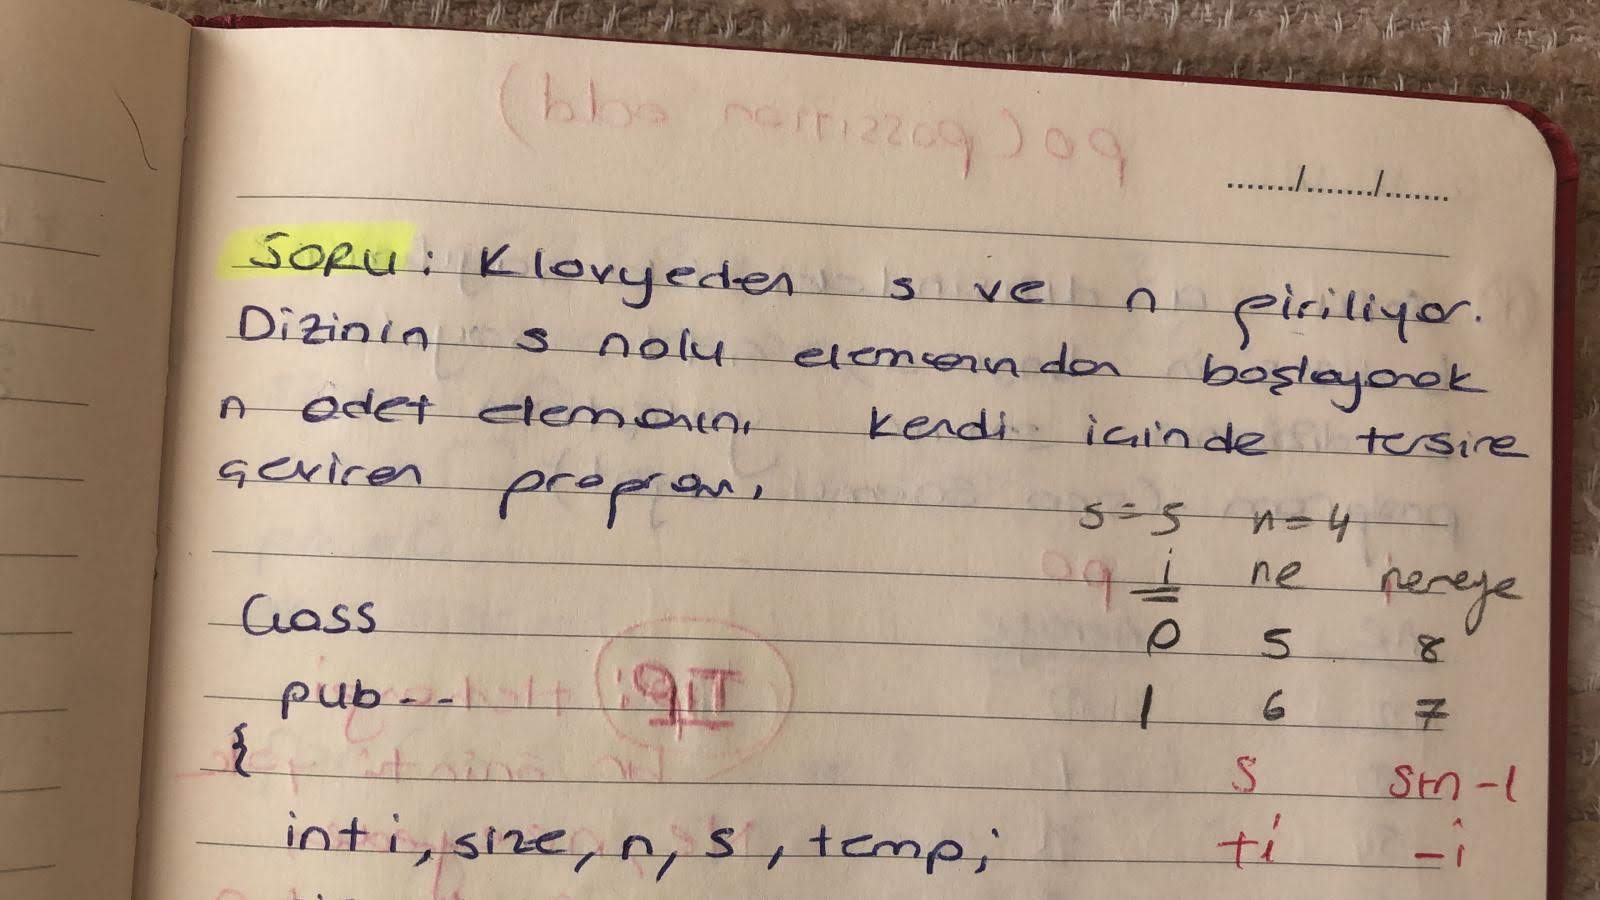 ......./......./.......
SORU: Klavyeden s ve n giriliyor.
Dizinin s nolu elemanından başlayarak
n adet elemanını kendi içinde tersine
çeviren program.
s=5 n=4
i ne nereye
0 5 8
1 6 7
s s+n-1
+i -i
Class
pub---
{
int i, size, n, s, temp;